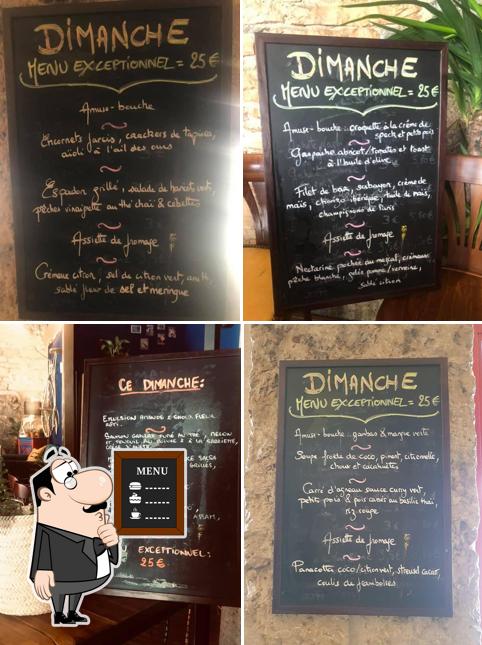 DIMANCHE
MENU EXCEPTIONNEL = 25€
Amuse-bouche
Encornets farcis, crackers de tapioca,
aïoli à l'ail des ours
Espadon grillé, salade de haricots vert,
pêches vinaigrette au thé chaï &
Assiette de fromage
Crémeux citron, sel de citron vert,
sablé fleur de sel et meringue
DIMANCHE
MENU EXCEPTIONNEL = 25€
Amuse-bouche : croquette à la crème de
speck et petits pois
Gaspacho abricot/tomates et toast
à l'huile d'olive
Filet de bar, sabayon, crème de
maïs, chorizo ibérique, tuile de maïs,
champignons de Paris
Assiette de fromage
Nectarine pochée au muscat, crémeux
pêche blanche, gelée pomme/verveine,
sablé citron
CE DIMANCHE:
EMULSION
SAUMON
SALSA
GRILLÉS,
MENU
EXCEPTIONNEL:
25€
DIMANCHE
MENU EXCEPTIONNEL = 25€
Amuse-bouche : gambas & mangue verte
Soupe froide de coco, piment, citronnelle,
choux et cacahuètes
Carré d'agneau sauce curry vert,
petits pois & pois cassés au basilic thaï,
riz soufflé
Assiette de fromage
Panacotta coco/citron vert, streusel cacao,
coulis de framboises.